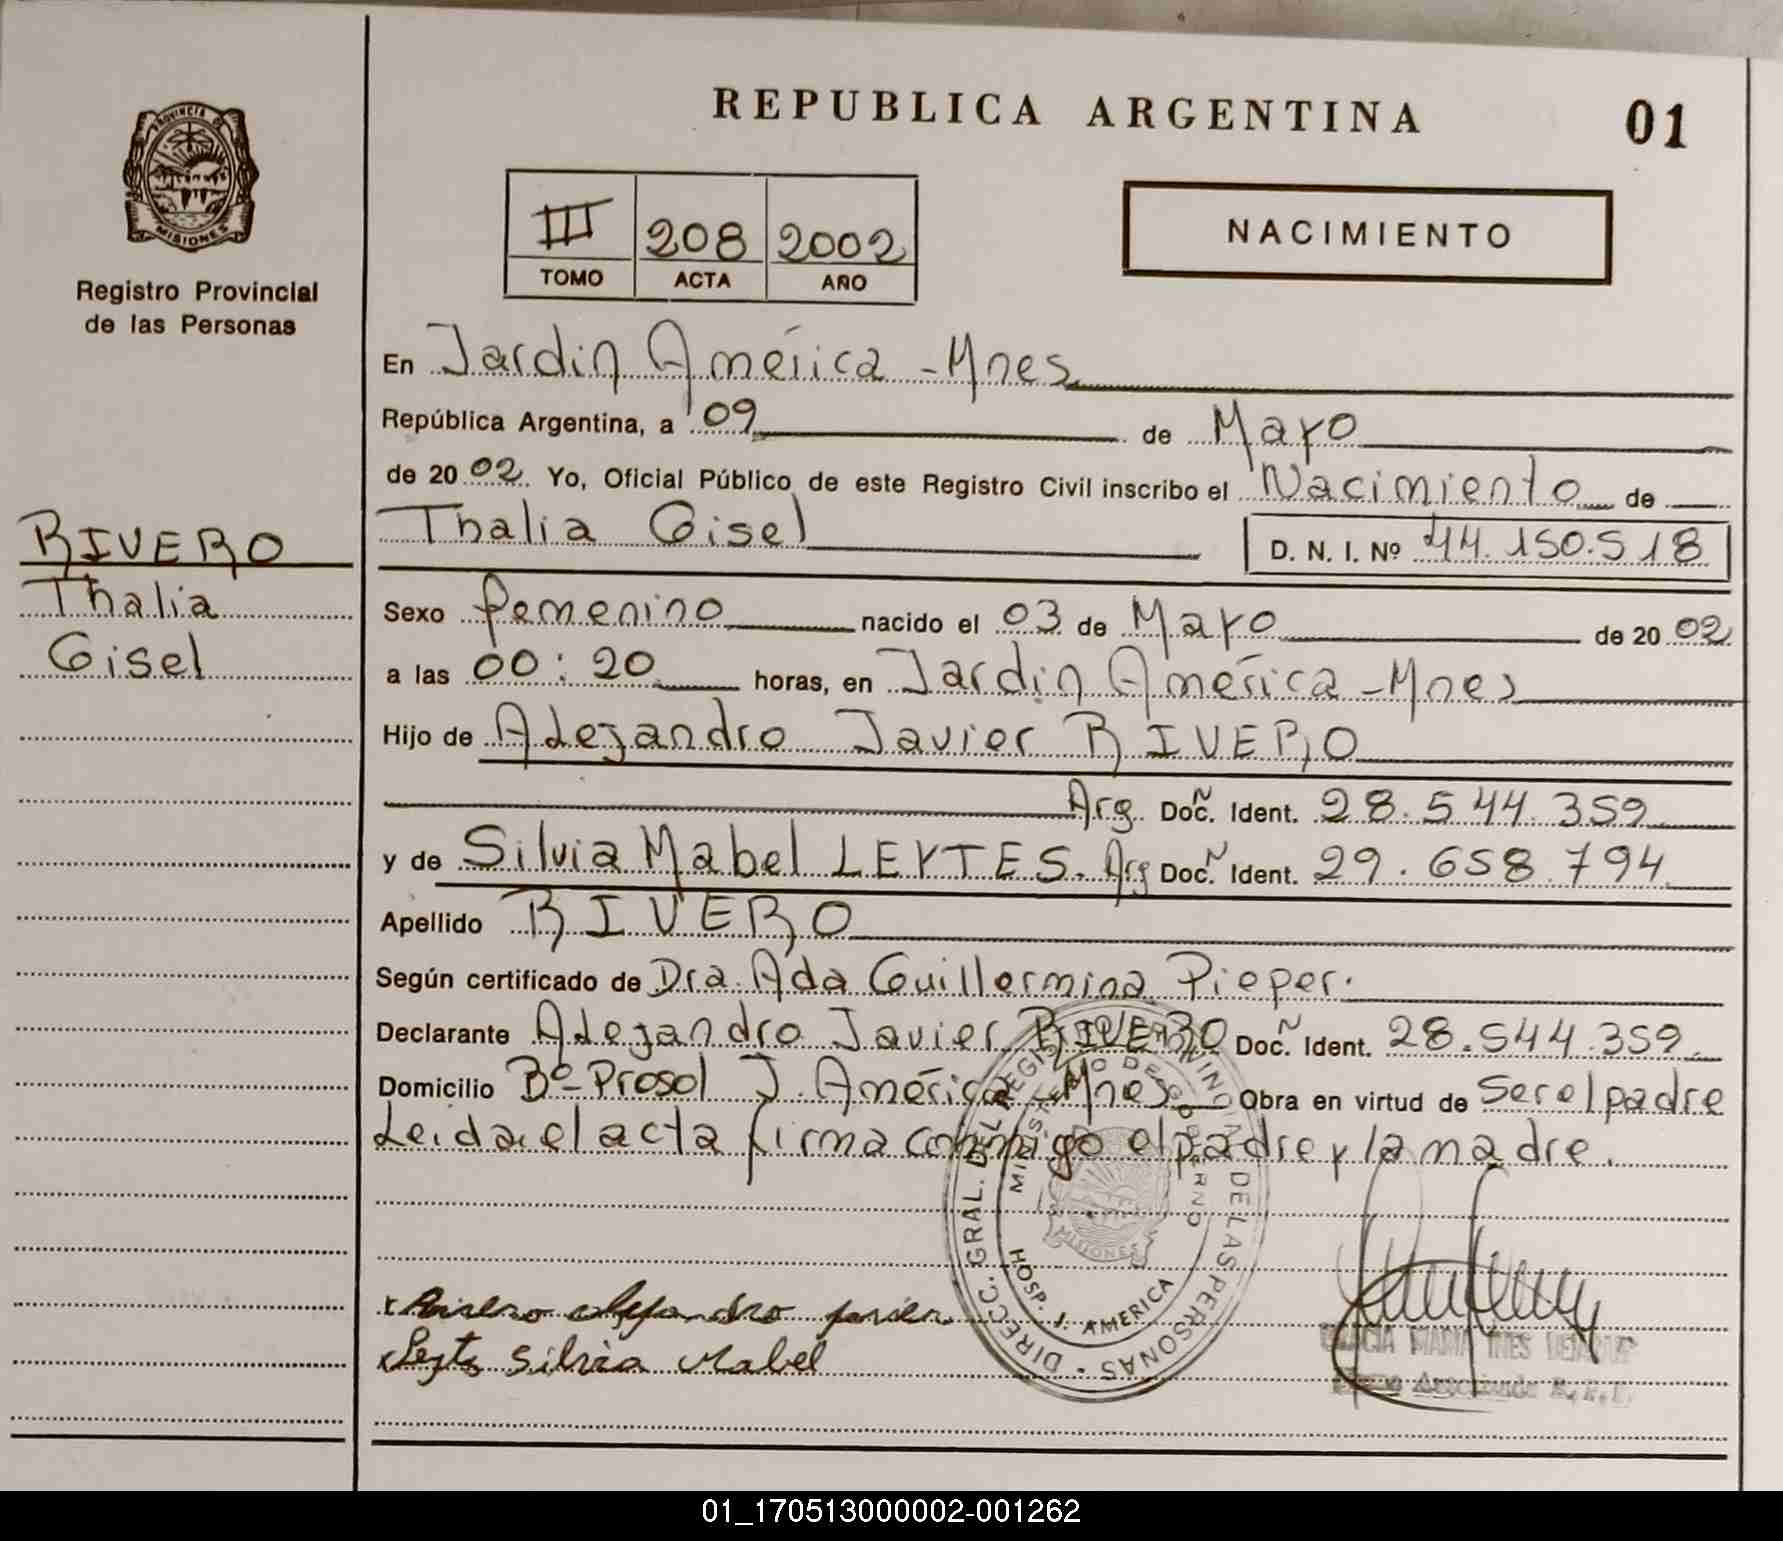 REPUBLICA ARGENTINA
01
PROVINCIA DE
MISIONES
Registro Provincial
de las Personas
III 208 2002
TOMO ACTA AÑO
NACIMIENTO
RIVERO
Thalia
Gisel
En Jardin América - Mnes
República Argentina, a 09 de Mayo
de 2002. Yo, Oficial Público de este Registro Civil inscribo el Nacimiento de
Thalia Gisel D. N. I. Nº 44.150.518
Sexo femenino nacido el 03 de Mayo de 2002
a las 00:20 horas, en Jardin América - Mnes
Hijo de Alejandro Javier RIVERO
Arg. Doc. Ident. 28.544.359
y de Silvia Mabel LEYTES. Arg Doc. Ident. 29.658.794
Apellido RIVERO
Según certificado de Dra. Ada Guillermina Pieper.
Declarante Alejandro Javier RIVERO Doc. Ident. 28.544.359
Domicilio Bº Prosol J. América - Mnes Obra en virtud de Ser el padre
Leida el acta firma conmigo el padre y la madre.
Rivero Alejandro Javier
Leytes Silvia Mabel
DIRECC. GRAL. DEL REGISTRO PROVINCIAL DE LAS PERSONAS
MINISTERIO DE GOBIERNO
MISIONES
HOSP. J. AMERICA
MARIA INES
01_170513000002-001262